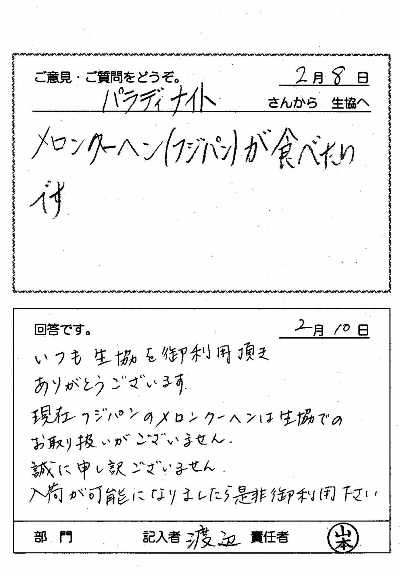 ご意見・ご質問をどうぞ。 2月8日
パラディナイト さんから 生協へ
メロンクーヘン(フジパン)が食べたい
です
回答です。 2月10日
いつも生協を御利用頂き
ありがとうございます.
現在フジパンのメロンクーヘンは生協での
お取り扱いがございません.
誠に申し訳ございません.
入荷が可能になりましたら是非御利用下さい
部門 記入者 渡辺 責任者 山本